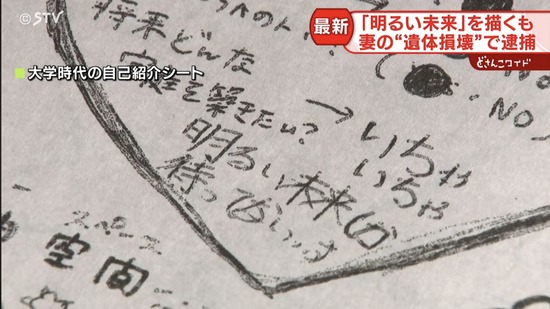 ©STV
最新
「明るい未来」を描くも
妻の“遺体損壊”で逮捕
どさんこワイド
大学時代の自己紹介シート
将来どんな
家庭を築きたい?
→いちゃ
いちゃ
明るい未来しか
待ってないっす
NO
NO
スペース
空間